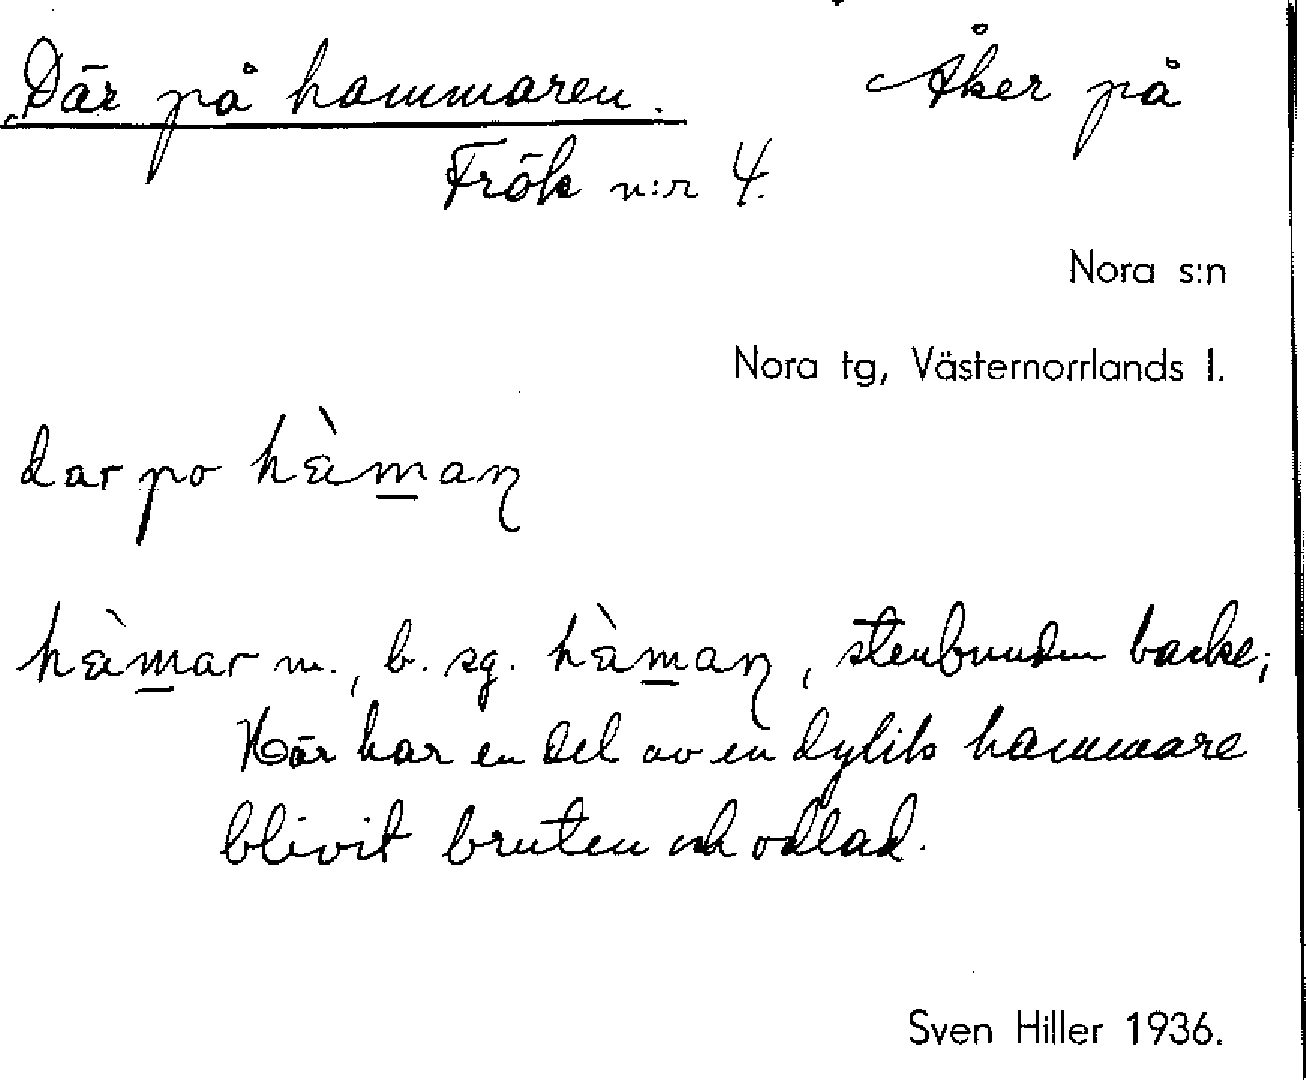 Där på hammaren. Åker på
Frök n:r 4.
Nora s:n
Nora tg, Västernorrlands l.
dar po hàm̲aɳ
hàm̲ar m., b. sg. hàm̲aɳ, stenbunden backe;
Här har en del av en dylik hammare
blivit bruten och odlad.
Sven Hiller 1936.